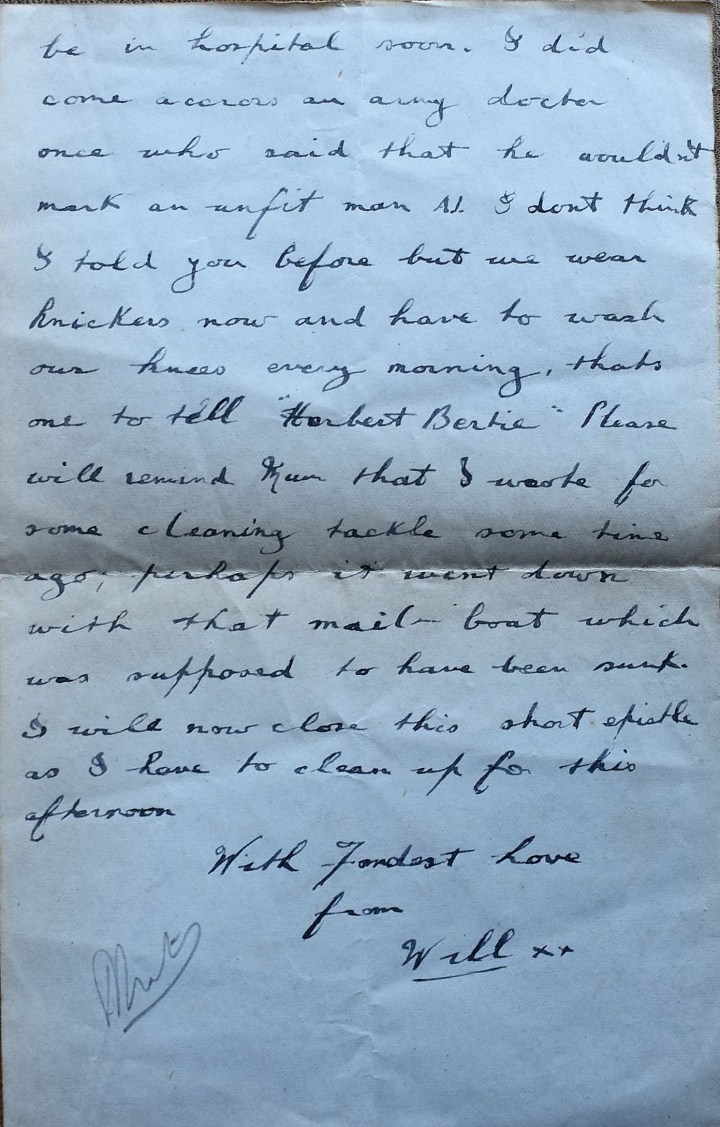 be in hospital soon. I did
come accross an army doctor
once who said that he wouldn't
mark an unfit man A1. I dont think
I told you before but we wear
knickers now and have to wash
our knees every morning, thats
one to tell "Herbert Bertie" Please
will remind Mum that I wrote for
some cleaning tackle some time
ago; perhaps it went down
with that mail-boat which
was supposed to have been sunk.
I will now close this short epistle
as I have to clean up for this
afternoon
With Fondest Love
from
Will xx